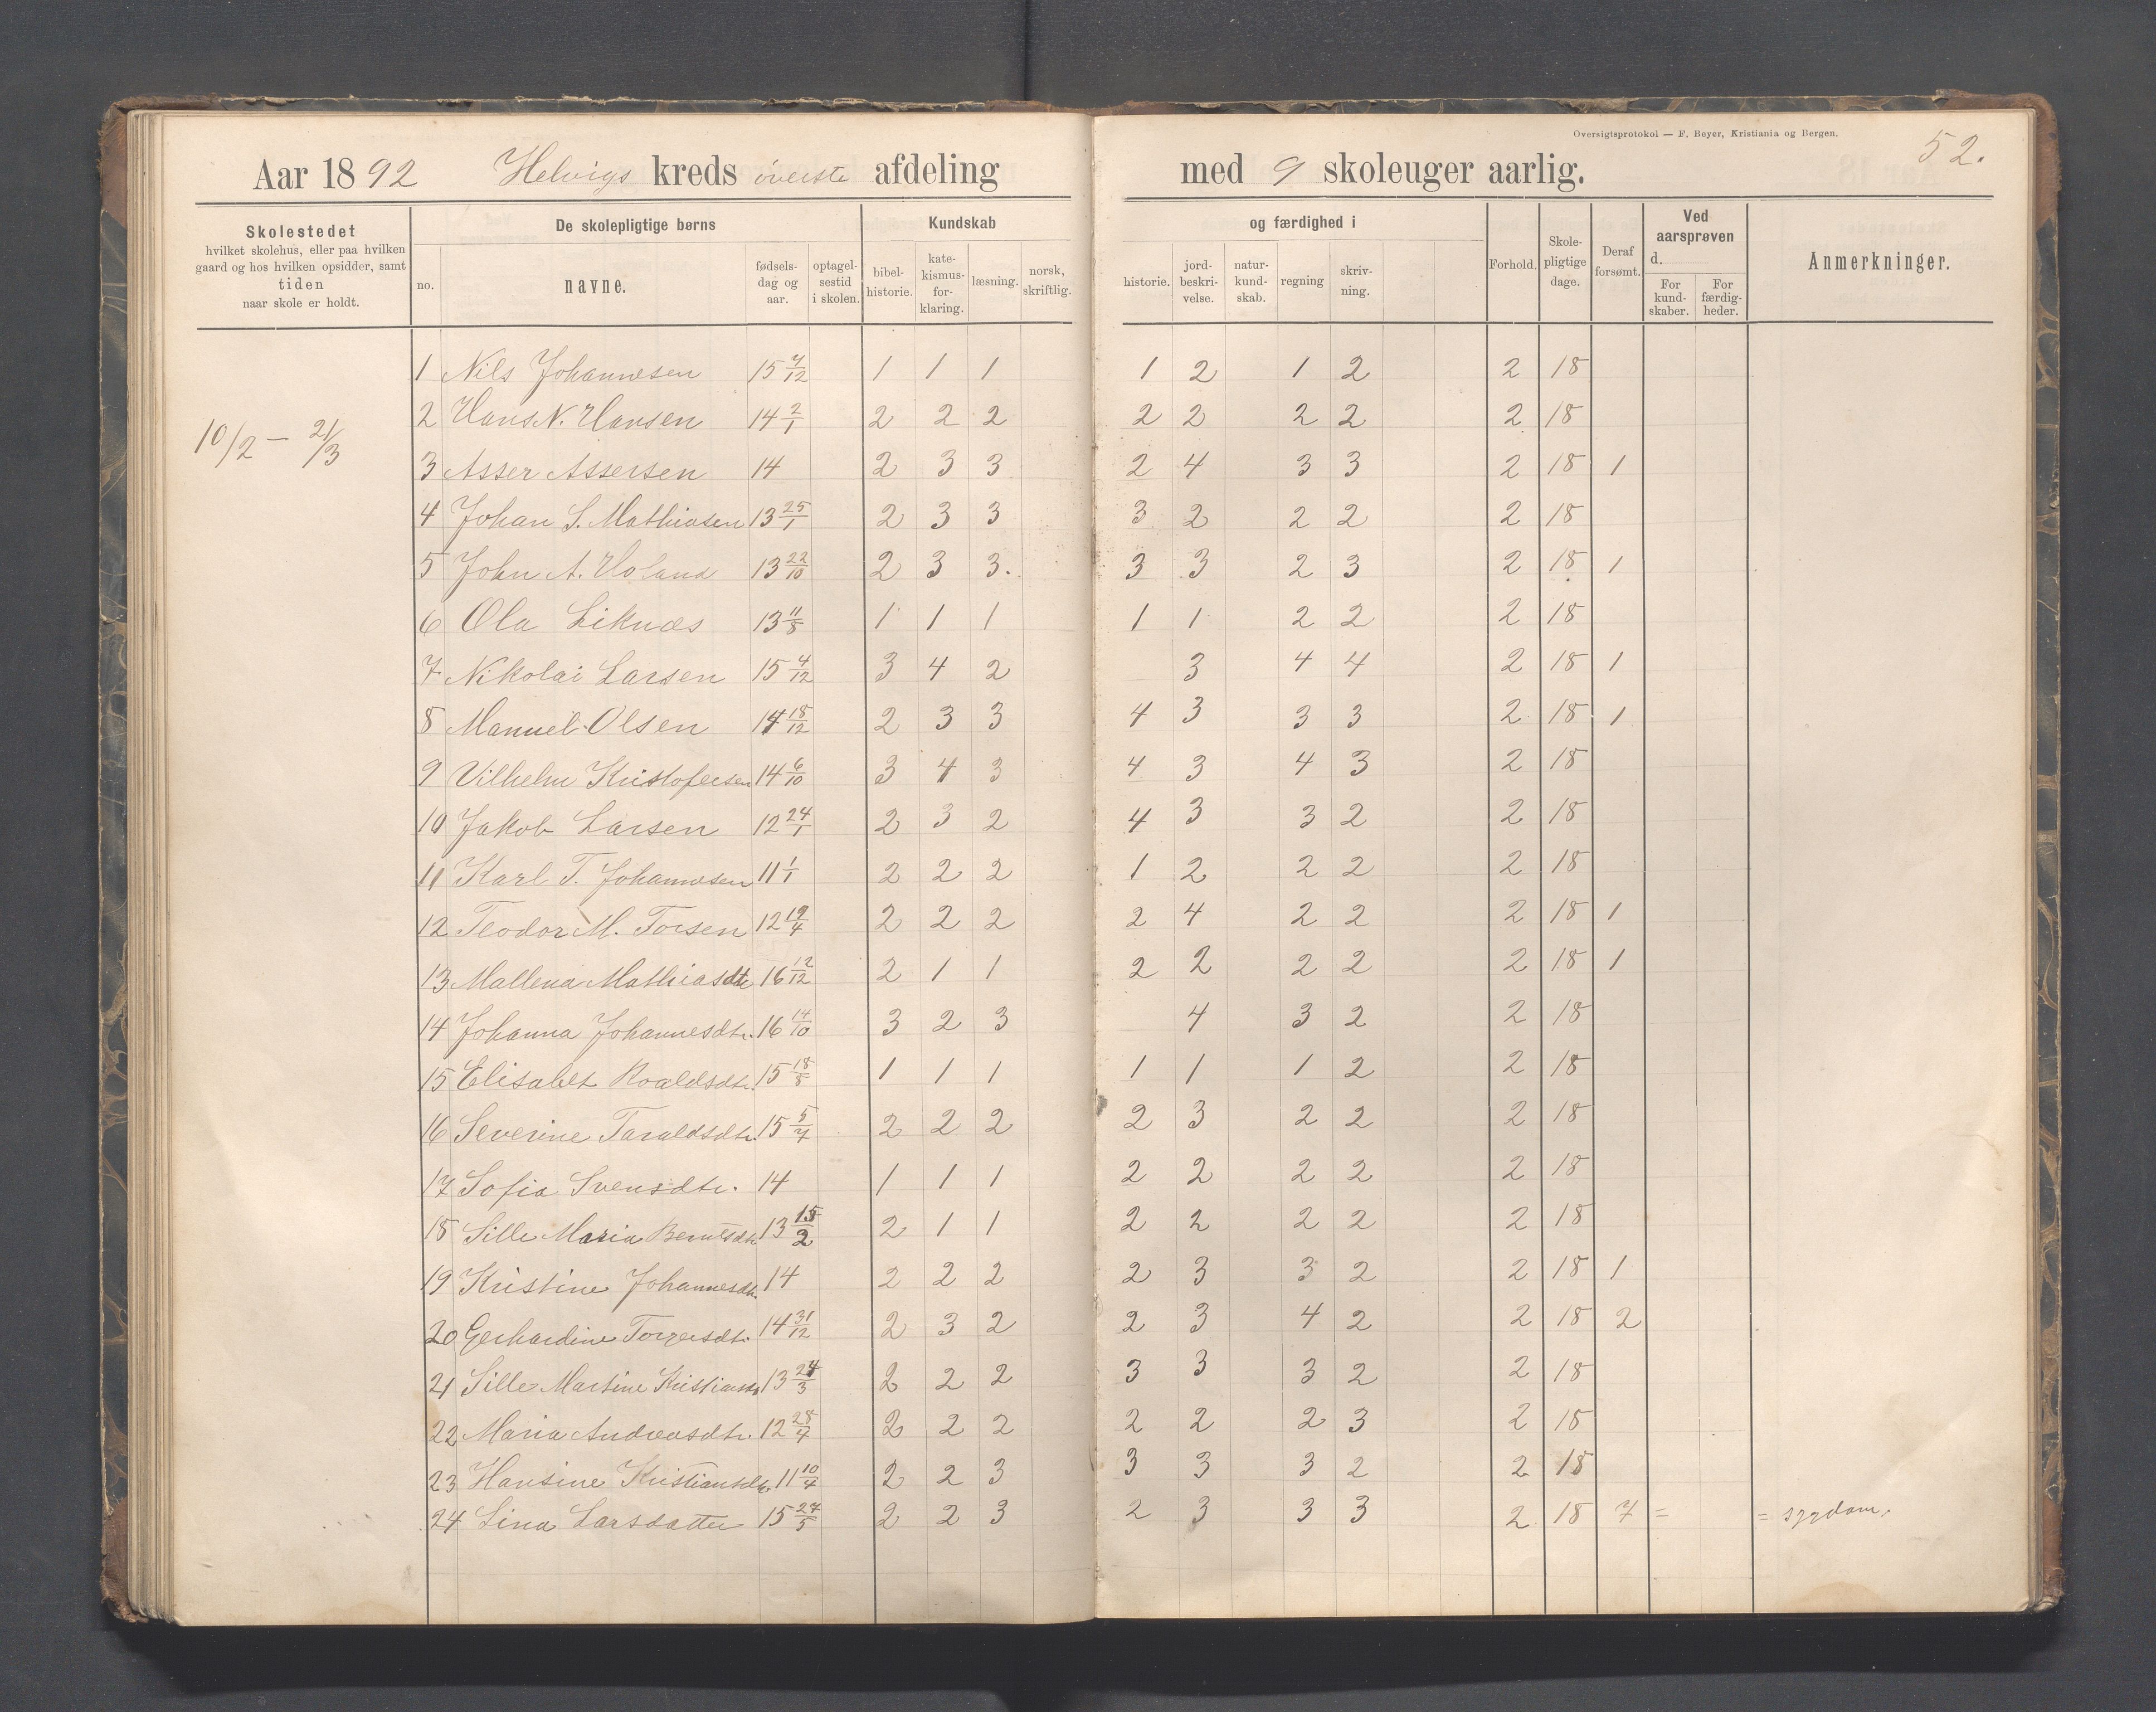 Oversigtsprotokol — F. Beyer, Kristiania og Bergen.
52.
Aar 1892 Helvigs kreds øverste afdeling med 9 skoleuger aarlig.
Skolestedet
hvilket skolehus, eller paa hvilken
gaard og hos hvilken opsidder, samt
tiden
naar skole er holdt.
De skolepligtige børns
no.
navne.
fødsels-
dag og
aar.
optagel-
sestid
i skolen.
Kundskab
bibel-
historie.
kate-
kismus-
for-
klaring.
læsning.
norsk,
skriftlig.
og færdighed i
historie.
jord-
beskri-
velse.
natur-
kund-
skab.
regning
skriv-
ning.
Forhold.
Skole-
pligtige
dage.
Deraf
forsømt.
Ved
aarsprøven
d.
For
kund-
skaber.
For
færdig-
heder.
Anmerkninger.
10/2 — 21/3
1 Nils Johannesen 15 7/12 1 1 1 1 2 1 2 2 18
2 Hans N. Hansen 14 2/1 2 2 2 2 2 2 2 2 18
3 Asser Assersen 14 2 3 3 2 4 3 3 2 18 1
4 Johan S. Mathiasen 13 25/1 2 3 3 3 2 2 2 2 18
5 John A. Holand 13 22/10 2 3 3. 3 3 2 3 2 18 1
6 Ola Liknæs 13 11/8 1 1 1 1 1 2 2 2 18
7 Nikolai Larsen 15 4/12 3 4 2 3 4 4 2 18 1
8 Manuel Olsen 14 18/12 2 3 3 4 3 3 3 2 18 1
9 Vilhelm Kristofersen 14 6/10 3 4 3 4 3 4 3 2 18
10 Jakob Larsen 12 24/1 2 3 2 4 3 3 2 2 18
11 Karl T. Johannesen 11 1/1 2 2 2 1 2 2 2 2 18
12 Teodor M. Torsen 12 19/4 2 2 2 2 4 2 2 2 18 1
13 Mallena Mathiasdtr 16 12/12 2 1 1 2 2 2 2 2 18 1
14 Johanna Johannesdtr. 16 14/10 3 2 3 4 3 2 2 18
15 Elisabet Roaldsdtr. 15 18/8 1 1 1 1 1 1 2 2 18
16 Severine Taraldsdtr. 15 5/7 2 2 2 2 3 2 2 2 18
17 Sofia Svensdtr. 14 1 1 1 2 2 2 2 2 18
18 Sille Maria Berntsdtr 13 15/2 2 1 1 2 2 2 2 2 18
19 Kristine Johannesdtr. 14 2 2 2 2 3 3 2 2 18 1
20 Gerhardine Torgersdtr. 14 31/12 2 3 2 2 3 4 2 2 18 2
21 Sille Martine Kristiansdtr 13 24/3 2 2 2 3 3 3 2 2 18
22 Maria Andreasdtr. 12 28/7 2 2 2 2 2 2 3 2 18
23 Hansine Kristiansdtr. 11 10/4 2 2 3 3 3 3 2 2 18
24 Lina Larsdatter 15 24/5 2 2 3 2 3 3 3 2 18 7 = = sygdom.